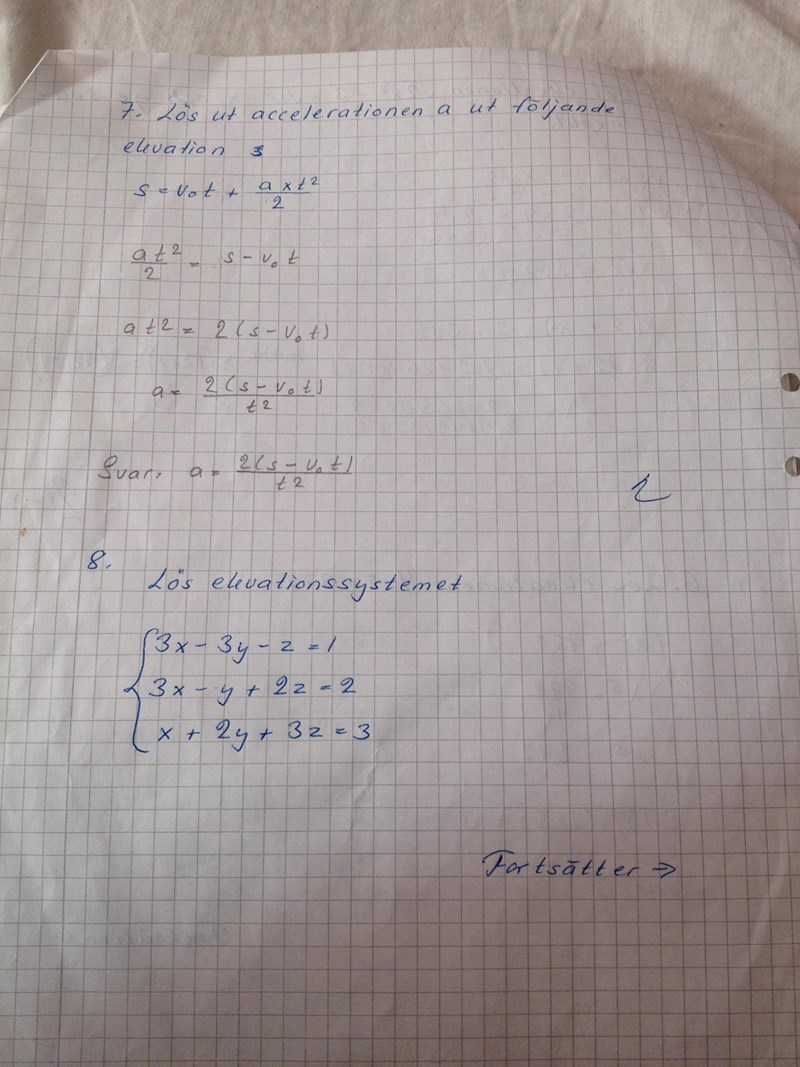 7. Lös ut accelerationen a ut följande
ekvation
s = v₀t + (a x t²)/2
(at²)/2 = s - v₀t
at² = 2(s - v₀t)
a = (2(s - v₀t))/t²
Svar. a = (2(s - v₀t))/t²
2
8.
Lös ekvationssystemet
3x - 3y - z = 1
3x - y + 2z = 2
x + 2y + 3z = 3
Fortsätter ⇒